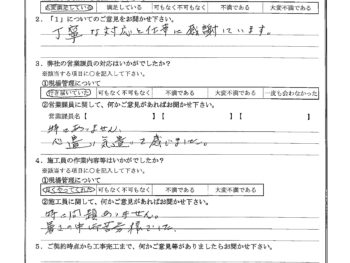 大変満足している 満足している 可もなく不可もなく 不満である 大変不満である
2.「1」についてのご意見をお聞かせ下さい。
丁寧な対応と仕事に感謝しています。
3. 弊社の営業課員の対応はいかがでしたか?
※該当する項目に○を記入して下さい。
①現場管理について
行き届いていた 可もなく不可もなく 不満である 大変不満である 一度も会わなかった
②営業課員に関して、何かご意見があればお聞かせ下さい。
営業課員名【 】【 】【 】
特にありません。
心遣い、気遣って感じました。
4. 施工員の作業内容等はいかがでしたか?
※該当する項目に○を記入して下さい。
①現場管理について
良くやってくれた 可もなく不可もなく 不満である 大変不満である
②施工員に関して、何かご意見があればお聞かせ下さい。
特に問題ありません。
暑さの中御苦労様でした。
5. ご契約時点から工事完工まで、何かご意見等がありましたらお聞かせ下さい。